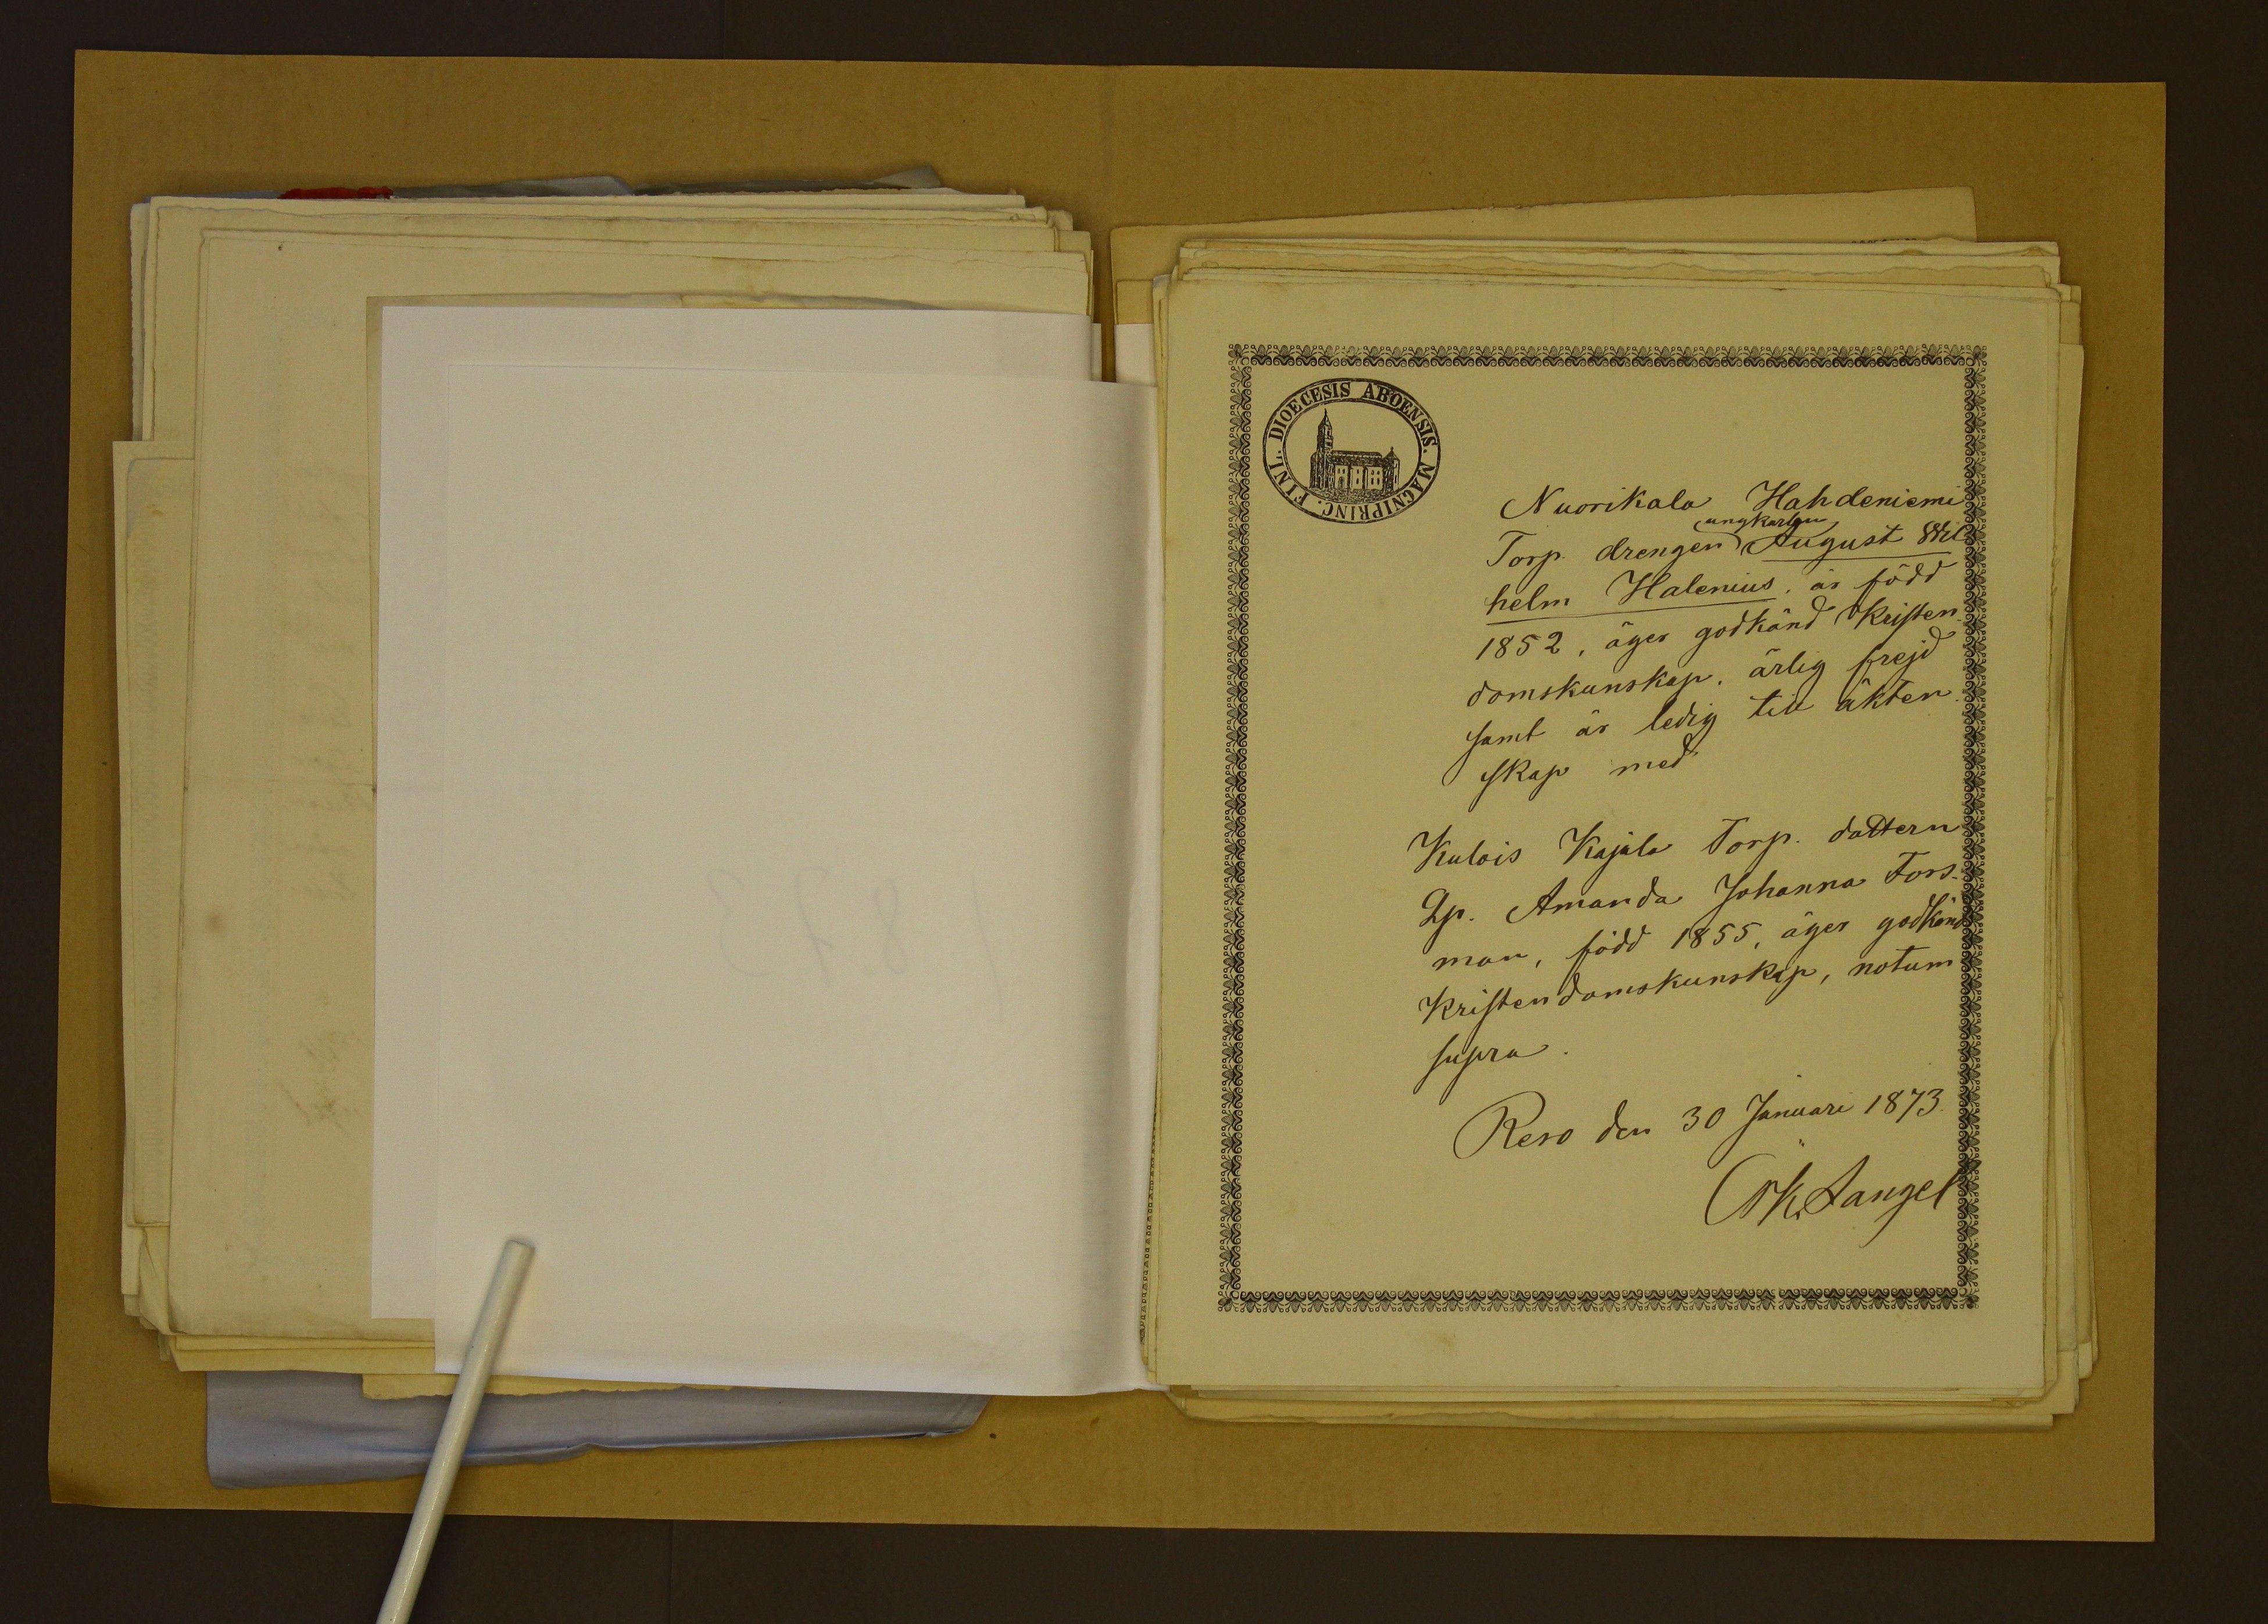 DIOECESIS ABOENSIS. MAGNIPRINC. FINL.
Nuorikala Hahdeniemi
ungkarlen
Torp. drengen August Wil
helm Halenius, är född
1852, äger godkänd Kristen
domskunskap, ärlig frejd
samt är ledig till äkten
skap med
Kulois Kajala Torp. dottern
Qp. Amanda Johanna Fors-
man, född 1855, äger godkänd
Kristendomskunskap, notum
supra.
Reso den 30 Januari 1873.